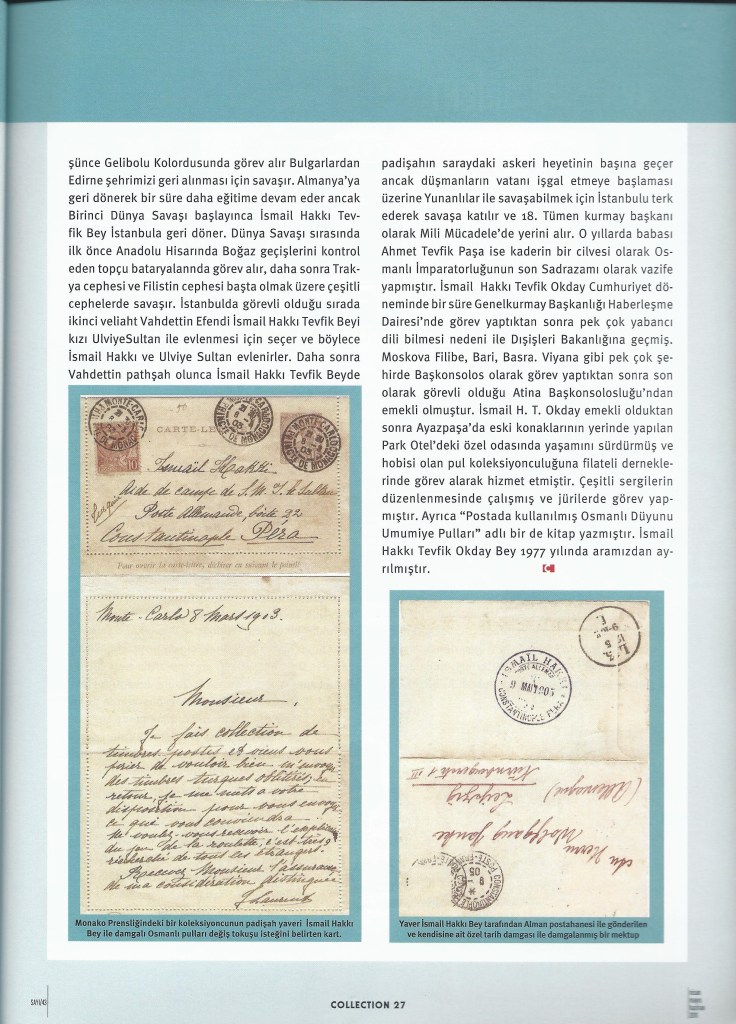 şünce Gelibolu Kolordusunda görev alır Bulgarlardan
Edirne şehrimizi geri alınması için savaşır. Almanya'ya
geri dönerek bir süre daha eğitime devam eder ancak
Birinci Dünya Savaşı başlayınca İsmail Hakkı Tev-
fik Bey İstanbula geri döner. Dünya Savaşı sırasında
ilk önce Anadolu Hisarında Boğaz geçişlerini kontrol
eden topçu bataryalannda görev alır, daha sonra Trak-
ya cephesi ve Filistin cephesi başta olmak üzere çeşitli
cephelerde savaşır. İstanbulda görevli olduğu sırada
ikinci veliaht Vahdettin Efendi İsmail Hakkı Tevfik Beyi
kızı UlviyeSultan ile evlenmesi için seçer ve böylece
İsmail Hakkı ve Ulviye Sultan evlenirler. Daha sonra
Vahdettin pathşah olunca İsmail Hakkı Tevfik Beyde
CARTE-LE
MONTE-CARLO
PTÉ DE MONACO
10
Ismaïl Hakki
Aide de camp de S. M. I. le Sultan
Poste Allemande, boîte 22
Constantinople Péra
Turquie
Pour ouvrir la carte-lettre, déchirer en suivant le pointillé
Monte-Carlo 8 Mars 1903.
Monsieur,
Je fais collection de
timbres-postes et viens vous
prier de vouloir bien m'envoyer
des timbres turques oblitérés, en
retour, je me mets à votre
disposition pour vous envoyer
ce qui vous conviendra.
de la roulette, c'est très
de tous les étrangers.
Recevez Monsieur l'assurance
de ma considération distinguée
J. Laurent
Monako Prensliğindeki bir koleksiyoncunun padişah yaveri İsmail Hakkı
Bey ile damgalı Osmanlı pulları değiş tokuşu isteğini belirten kart.
padişahın saraydaki askeri heyetinin başına geçer
ancak düşmanların vatanı işgal etmeye başlaması
üzerine Yunanlılar ile savaşabilmek için İstanbulu terk
ederek savaşa katılır ve 18. Tümen kurmay başkanı
olarak Mili Mücadele'de yerini alır. O yıllarda babası
Ahmet Tevfik Paşa ise kaderin bir cilvesi olarak Os-
manlı İmparatorluğunun son Sadrazamı olarak vazife
yapmıştır. İsmail Hakkı Tevfik Okday Cumhuriyet dö-
neminde bir süre Genelkurmay Başkanlığı Haberleşme
Dairesi'nde görev yaptıktan sonra pek çok yabancı
dili bilmesi nedeni ile Dışişleri Bakanlığına geçmiş.
Moskova Filibe, Bari, Basra. Viyana gibi pek çok şe-
hirde Başkonsolos olarak görev yaptıktan sonra son
olarak görevli olduğu Atina Başkonsolosluğu'ndan
emekli olmuştur. İsmail H. T. Okday emekli olduktan
sonra Ayazpaşa'da eski konaklarının yerinde yapılan
Park Otel'deki özel odasında yaşamını sürdürmüş ve
hobisi olan pul koleksiyonculuğuna filateli dernekle-
rinde görev alarak hizmet etmiştir. Çeşitli sergilerin
düzenlenmesinde çalışmış ve jürilerde görev yap-
mıştır. Ayrıca “Postada kullanılmış Osmanlı Düyunu
Umumiye Pulları” adlı bir de kitap yazmıştır. İsmail
Hakkı Tevfik Okday Bey 1977 yılında aramızdan ay-
rılmıştır.
ISMAÏL HAKKI
CONSTANTINOPLE-PÉRA
An Herrn
Wolfgang
Leipzig
(Allemagne)
Yaver İsmail Hakkı Bey tarafından Alman postahanesi ile gönderilen
ve kendisine ait özel tarih damgası ile damgalanmış bir mektup
SAYI/43
COLLECTION 27